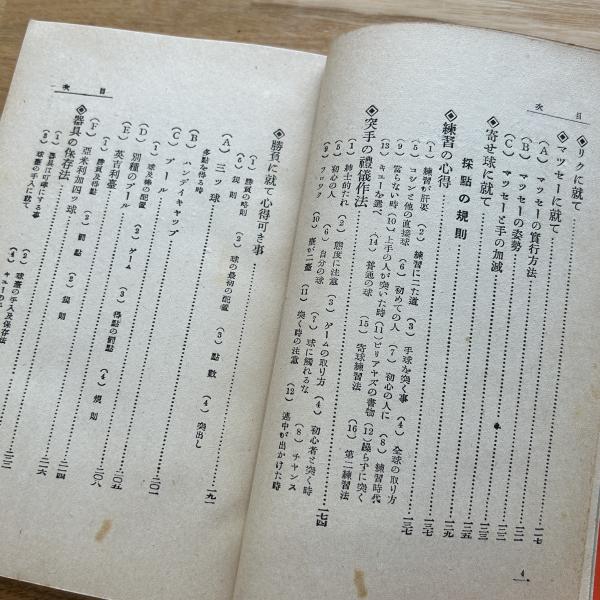 目次
◈リクに就て
◈マッセーに就て……一一七
(A) マッセーの實行方法……一二一
(B) マッセーの姿勢……一三一
(C) マッセーと手の加減……一三三
◈寄せ球に就て……一三五
採點の規則……一二九
◈練習の心得……一三七
(1) 練習が肝要 (2) 練習に二た道 (3) 手球を突く事 (4) 全球の取り方
(5) コツンと他の直接球 (6) 初めての人 (7) 初心の人に (8) 練習時代
(9) 當らない時 (10) 上手の人が突いた時 (11) ビリアヤズの書物 (12) 操らずに突く
(13) キューを選べ (14) 普通の球 (15) 寄球練習法 (16) 第二練習法
◈突手の禮儀作法……一七四
(1) 紳士的たれ (2) 態度に注意 (3) ゲームの取り方 (4) 初心者と突く時
(5) 初心の人 (6) 自分の球 (7) 球に觸れるな (8) チャンス
(9) フロック (10) 臺が二臺 (11) 突く時の注意 (12) 途中が出かけた時
4
目次
◈勝負に就て心得可き事
(1) 勝負の時 (2) 球の最初の配置 (3) 點數 (4) 突出し
(5) 規則
(A) 三ッ球……一九一
多點を得る時
(B) ハンデイキャップ
(C) プール……二〇一
(1) 球及棒の配置 (2) ゲーム (3) 得點の罰點 (4) 規則
(D) 別種のプール……二〇五
(E) 英吉利臺……二〇八
(1) 勝負及得點 (2) 罰點 (3) 規則
(F) 亞米利加四ッ球……二一四
◈器具の保存法……二一六
(1) 器具は叮嚀にする事 (2) 球臺の手入及保存法
(3) 球臺の手入に就て (4) キューの